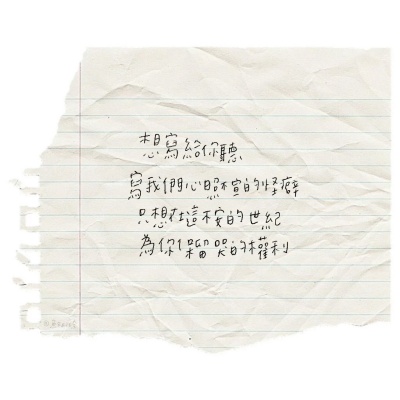 想寫給你聽
寫我們心照不宣的怪癖
只想在這不安的世紀
為你保留哭的權利